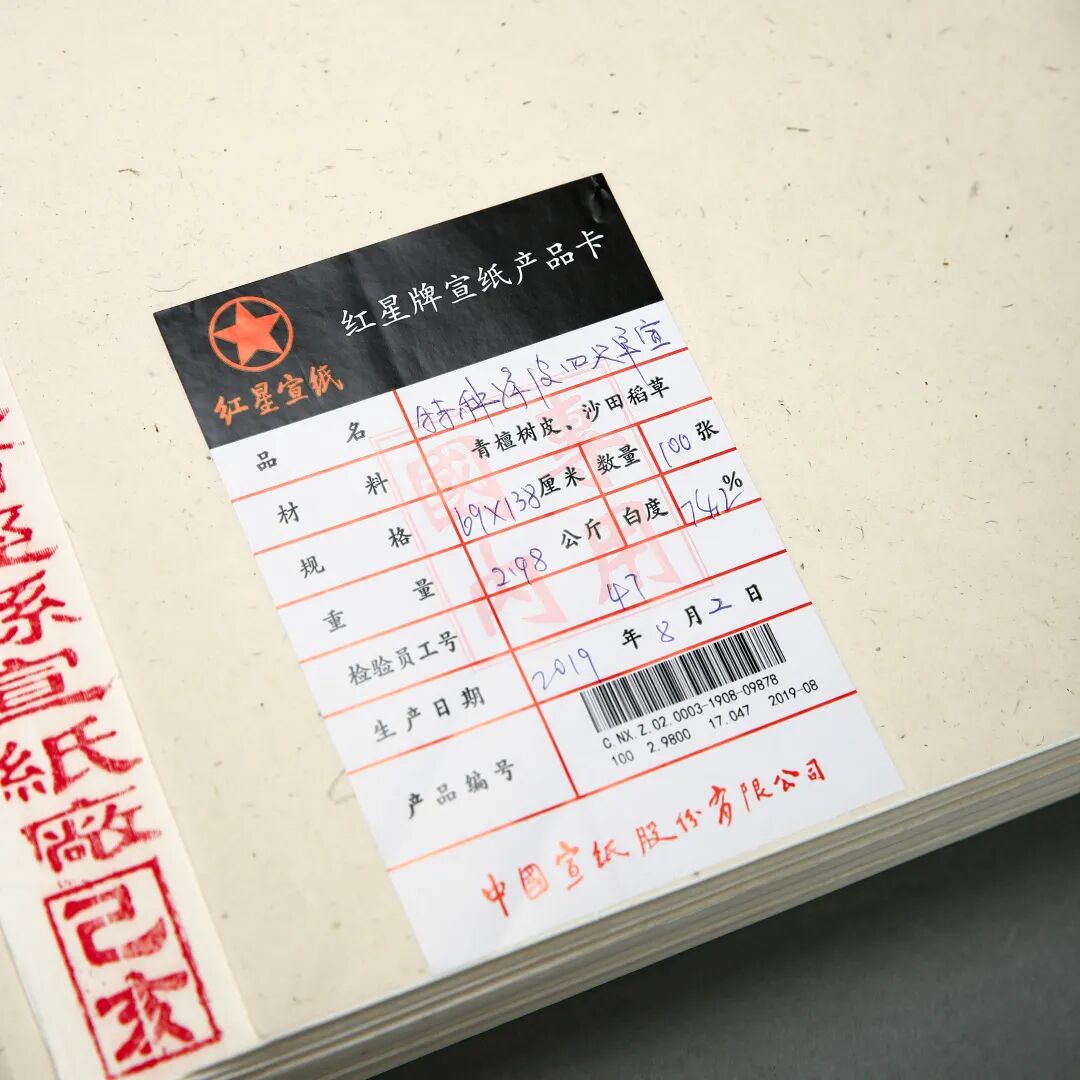 红星牌宣纸产品卡
红星宣纸
品名 特种净皮四尺单宣
材料 青檀树皮、沙田稻草
规格 69×138厘米 数量 100张
重量 2.98公斤 白度 74.2%
检验员工号 47
生产日期 2019年8月2日
产品编号
C.NX.Z.02.0003-1908-09878
100 2.9800 17.047 2019-08
中國宣纸股份有限公司
國内專用
系宣紙廠
己亥